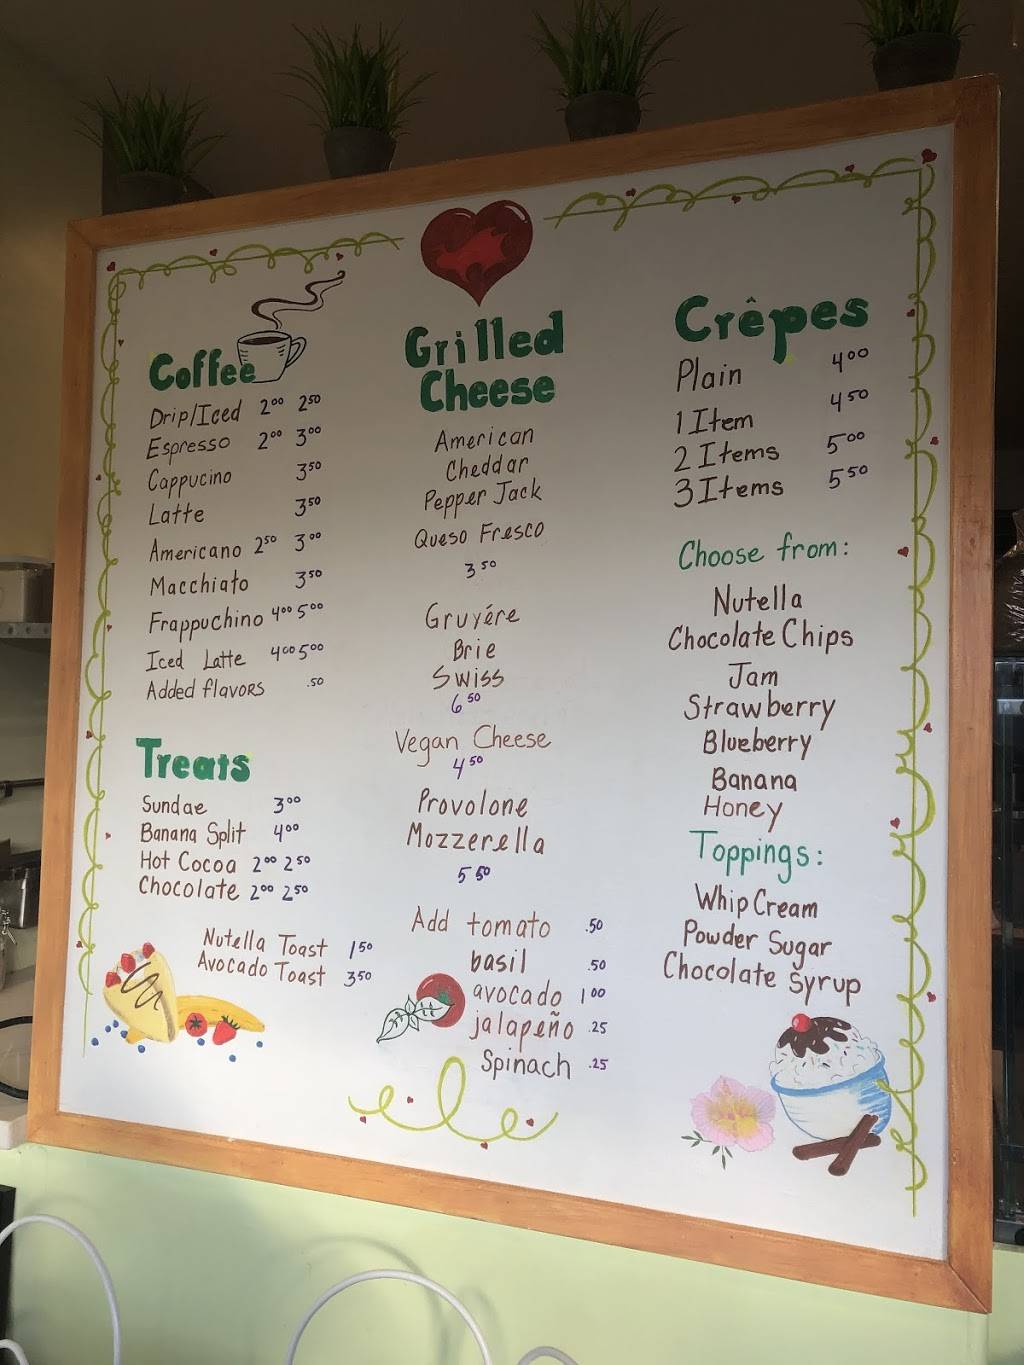 Coffee
Drip/Iced 2⁰⁰ 2⁵⁰
Espresso 2⁰⁰ 3⁰⁰
Cappucino 3⁵⁰
Latte 3⁵⁰
Americano 2⁵⁰ 3⁰⁰
Macchiato 3⁵⁰
Frappuchino 4⁰⁰ 5⁰⁰
Iced Latte 4⁰⁰ 5⁰⁰
Added flavors .50
Treats
Sundae 3⁰⁰
Banana Split 4⁰⁰
Hot Cocoa 2⁰⁰ 2⁵⁰
Chocolate 2⁰⁰ 2⁵⁰
Nutella Toast 1⁵⁰
Avocado Toast 3⁵⁰
Grilled
Cheese
American
Cheddar
Pepper Jack
Queso Fresco
3⁵⁰
Gruyére
Brie
Swiss
6⁵⁰
Vegan Cheese
4⁵⁰
Provolone
Mozzerella
5⁵⁰
Add tomato .50
basil .50
avocado 1⁰⁰
jalapeño .25
Spinach .25
Crêpes
Plain 4⁰⁰
1 Item 4⁵⁰
2 Items 5⁰⁰
3 Items 5⁵⁰
Choose from:
Nutella
Chocolate Chips
Jam
Strawberry
Blueberry
Banana
Honey
Toppings:
Whip Cream
Powder Sugar
Chocolate Syrup